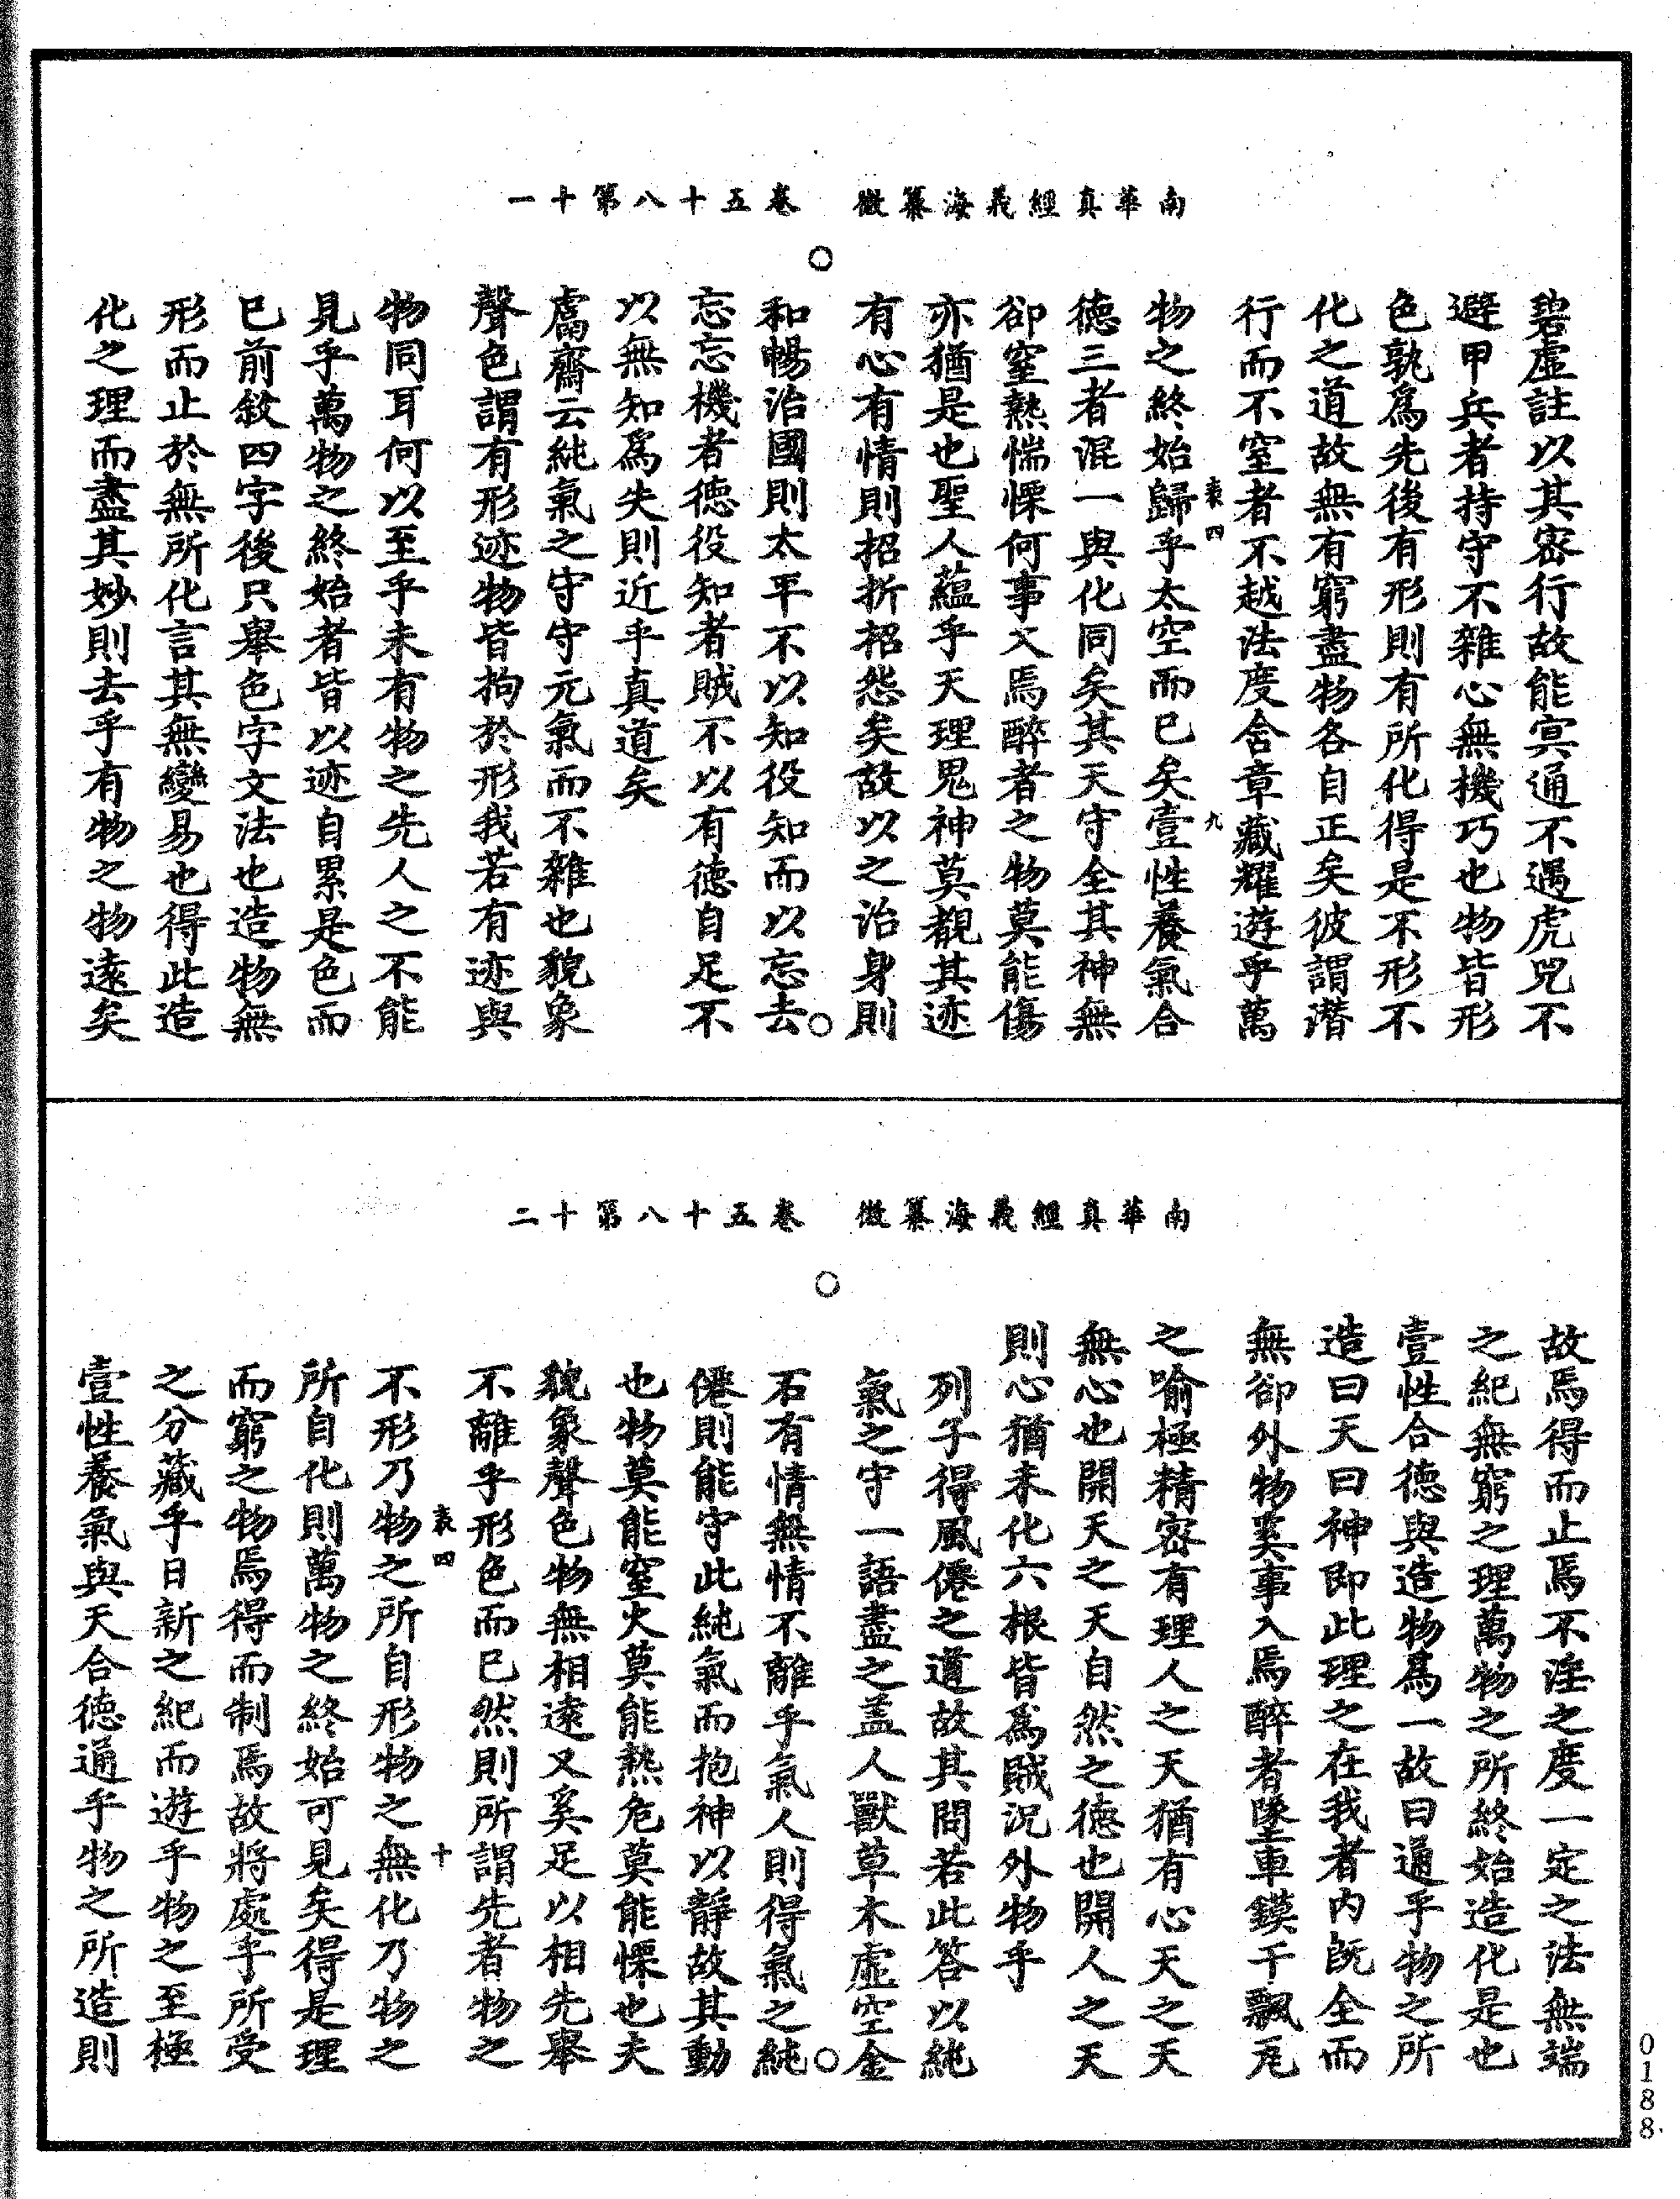 南華真經義海纂微　卷五十八第十一
碧虛註以其密行故能㝠通不遇虎兕不
避甲兵者持守不雜心無機巧也物皆形
色孰爲先後有形則有所化得是不形不
化之道故無有窮盡物各自正矣彼謂潛
行而不窒者不越法度含章藏耀遊乎萬
表四　九
物之終始歸乎太空而已矣壹性養氣合
德三者混一與化同矣其天守全其神無
卻窒熱惴慄何事入焉醉者之物莫能傷
亦猶是也聖人蘊乎天理鬼神莫覩其迹
有心有情則招折招怨矣故以之治身則
和暢治國則太平不以知役知而以忘去
忘忘機者德役知者賊不以有德自足不
以無知爲失則近乎真道矣
鬳齋云純氣之守守元氣而不雜也貌象
聲色謂有形迹物皆拘於形我若有迹與
物同耳何以至乎未有物之先人之不能
見乎萬物之終始者皆以迹自累是色而
已前敘四字後只舉色字文法也造物無
形而止於無所化言其無變易也得此造
化之理而盡其妙則去乎有物之物遠矣
南華真經義海纂微　卷五十八第十二
故焉得而止焉不淫之度一定之法無端
之紀無窮之理萬物之所終始造化是也
壹性合德與造物爲一故曰通乎物之所
造曰天曰神即此理之在我者内旣全而
無卻外物奚事入焉醉者墜車鏌干飄瓦
之喻極精密有理人之天猶有心天之天
無心也開天之天自然之德也開人之天
則心猶未化六根皆爲賊況外物乎
列子得風僊之道故其問若此答以純
氣之守一語盡之盖人獸草木虛空金
石有情無情不離乎氣人則得氣之純
僊則能守此純氣而抱神以靜故其動
也物莫能窒火莫能熱危莫能慄也夫
貌象聲色物無相遠又奚足以相先舉
不離乎形色而已然則所謂先者物之
表四　十
不形乃物之所自形物之無化乃物之
所自化則萬物之終始可見矣得是理
而窮之物焉得而制焉故將處乎所受
之分藏乎日新之紀而遊乎物之至極
壹性養氣與天合德通乎物之所造則
0188